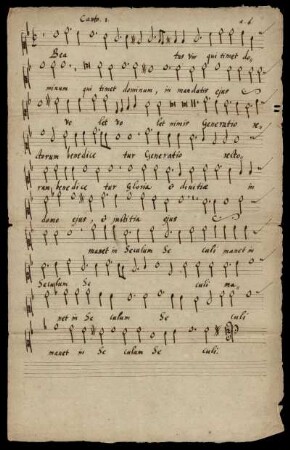 Canto. 1. a. 6
Bea tus vir qui timet do,
minum qui timet dominum, in mandatis ejus
Vo let Vo let nimis Generatio re,
ctorum benedice tur Generatio recto,
rum benedice tur Gloria & divitiæ in
domo ejus, & iustitia ejus
manet in Seculum Se culi manet in
Seculum Se culi ma,
net in Se culum Se culi
manet in Se culum Se culi.